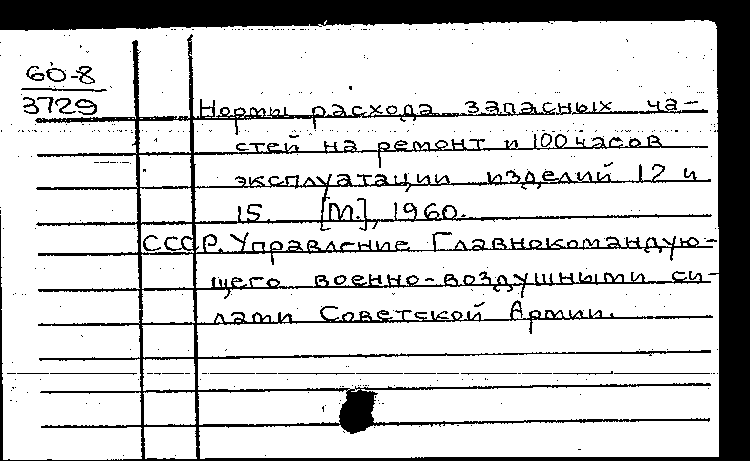 60-8
3729
Нормы расхода запасных ча-
стей на ремонт и 100 часов
эксплуатации изделий 12 и
15. [М.], 1960.
СССР. Управление Главнокомандую-
щего военно-воздушными си-
лами Советской Армии.